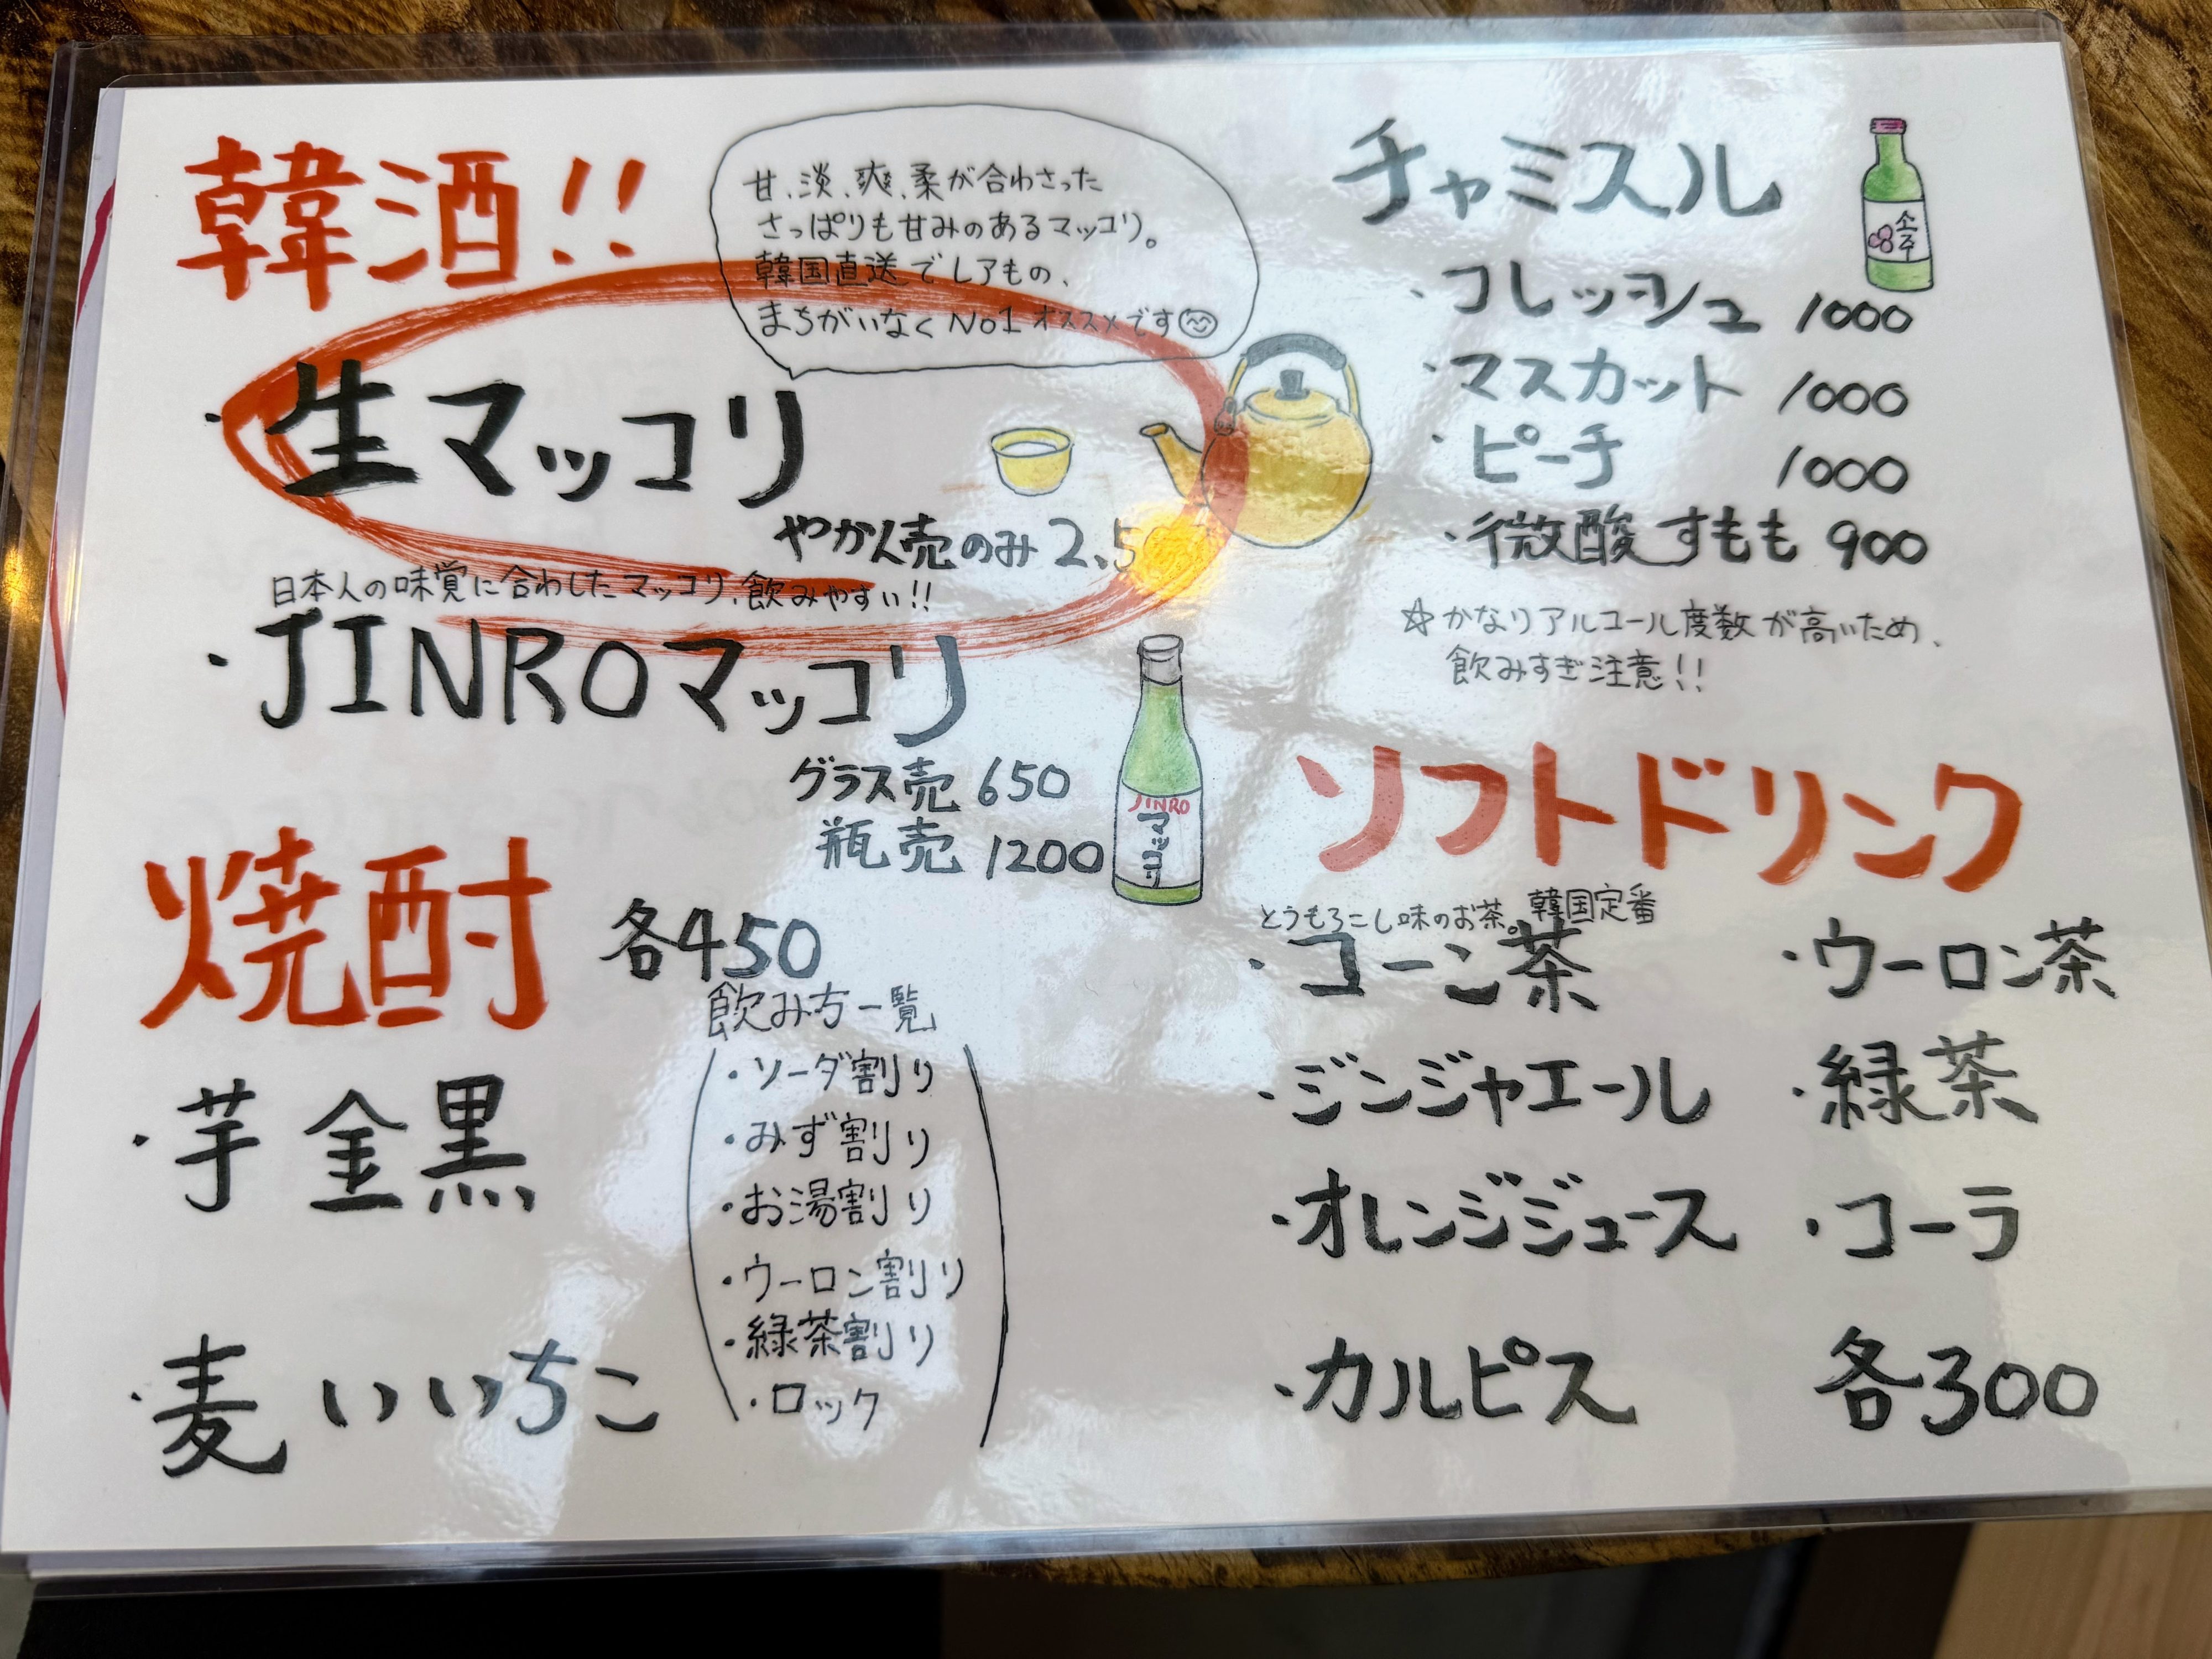 韓酒!!
甘、淡、爽、柔が合わさった
さっぱりも甘みのあるマッコリ。
韓国直送でレアもの、
まちがいなくNo1オススメです
・生マッコリ
やかん売のみ 2,5
日本人の味覚に合わしたマッコリ、飲みやすい!!
・JINROマッコリ
グラス売 650
瓶売 1200
JINRO
マッコリ
焼酎 各450
飲み方一覧
・ソーダ割り
・みず割り
・お湯割り
・ウーロン割り
・緑茶割り
・ロック
・芋 金黒
・麦 いいちこ
チャミスル
소주
・フレッシュ 1000
・マスカット 1000
・ピーチ 1000
・微酸すもも 900
☆かなりアルコール度数が高いため、
飲みすぎ注意!!
ソフトドリンク
とうもろこし味のお茶。韓国定番
・コーン茶 ・ウーロン茶
・ジンジャエール ・緑茶
・オレンジジュース ・コーラ
・カルピス 各300